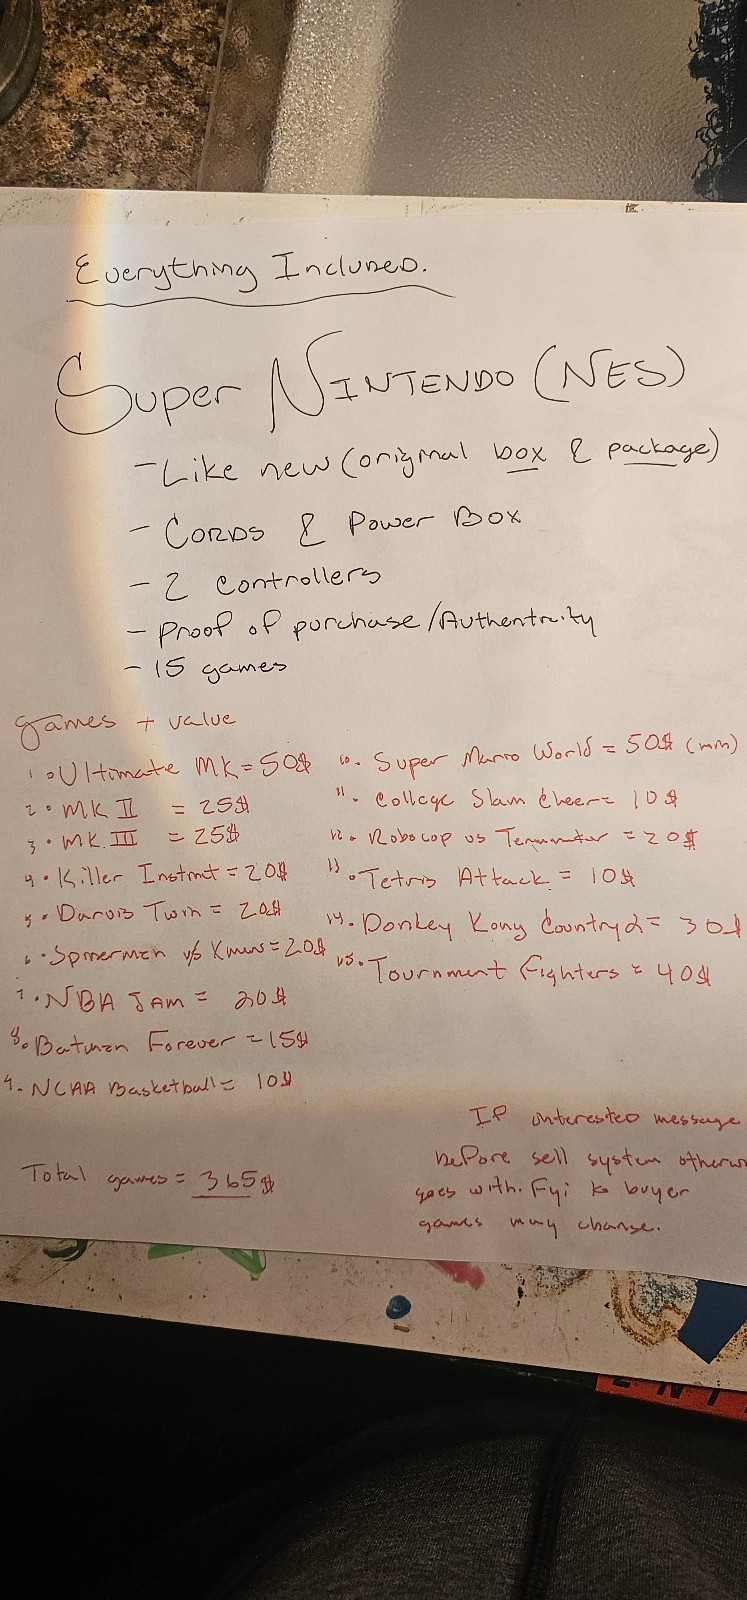 Everything Included.
Super NINTENDO (NES)
- Like new (original box & package)
- Cords & Power Box
- 2 controllers
- Proof of purchase/Authenticity
- 15 games
games + value
1. Ultimate MK = 50$
2. MK II = 25$
3. MK III = 25$
4. Killer Instinct = 20$
5. Twin = 20$
6. v/s Xmen = 20$
7. NBA JAM = 20$
8. Batman Forever = 15$
9. NCAA Basketball = 10$
10. Super Mario World = 50$ (mm)
11. College Slam = 10$
12. Robocop vs Terminator = 20$
13. Tetris Attack = 10$
14. Donkey Kong Country 2 = 30$
15. Tournment Fighters = 40$
Total games = 365$
If interested message
before sell system
goes with. Fyi to buyer
games may change.